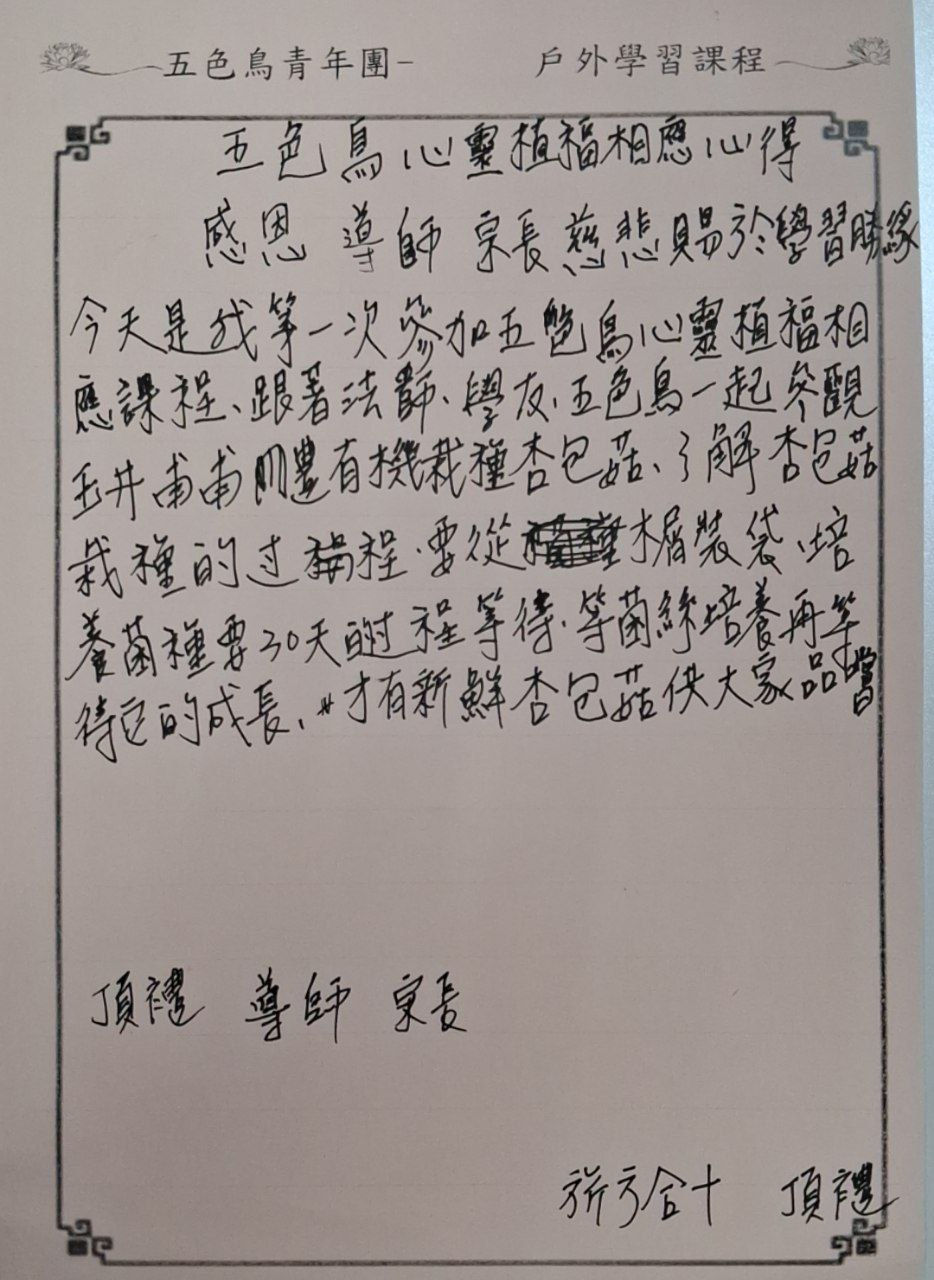 五色鳥青年團- 戶外學習課程
五色鳥心靈植福相應心得
感恩 導師 宗長慈悲賜於學習勝緣
今天是我第一次參加五色鳥心靈植福相
應課程、跟著法師、學友、五色鳥一起參觀
玉井甫甫豐有機栽種杏包菇、了解杏包菇
栽種的过程、要從木屑裝袋、培
養菌種要30天的过程等待、等菌絲培養再等
待它的成長、才有新鮮杏包菇供大家品嚐
頂禮 導師 宗長
合十 頂禮